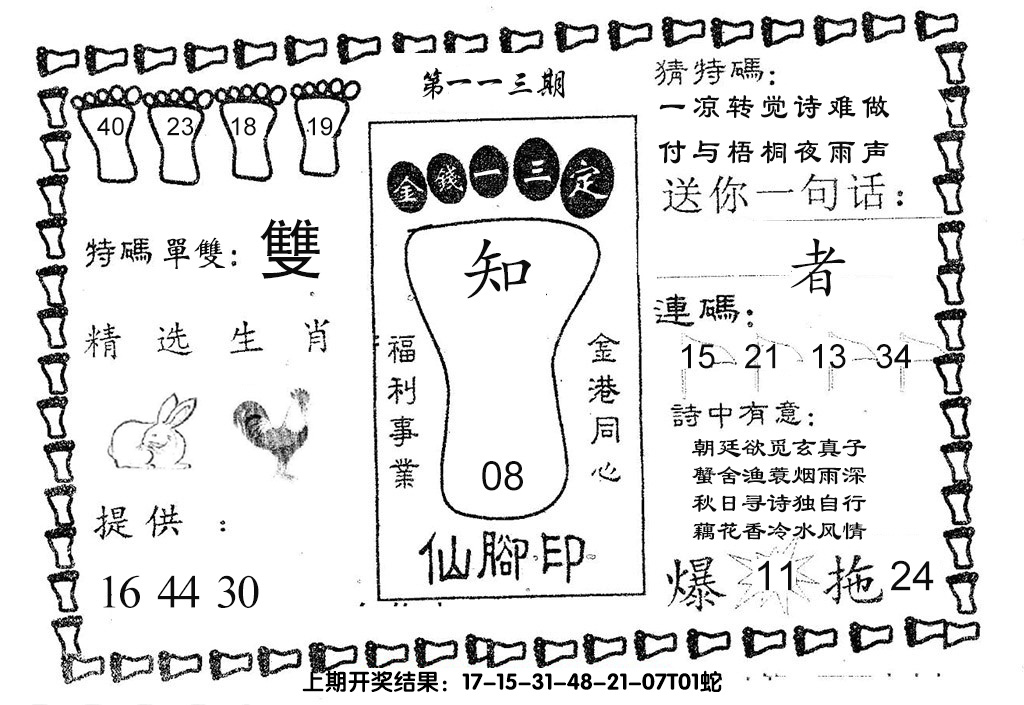 第一一三期
40 23 18 19
特碼單雙：雙
精选生肖
提供：
16 44 30
金錢一三定
知
福利事業
金港同心
08
仙腳印
猜特碼：
一凉转觉诗难做
付与梧桐夜雨声
送你一句话：
者
連碼：
15 21 13 34
詩中有意：
朝廷欲觅玄真子
蟹舍渔蓑烟雨深
秋日寻诗独自行
藕花香冷水风情
爆 11 拖 24
上期开奖结果：17-15-31-48-21-07T01蛇